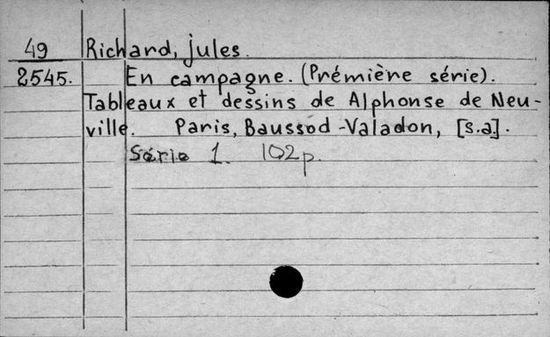 49 Richard, jules.
2545. En campagne. (Prémière série).
Tableaux et dessins de Alphonse de Neu-
ville. Paris, Baussod-Valadon, [s.a].
Série 1. 102p.